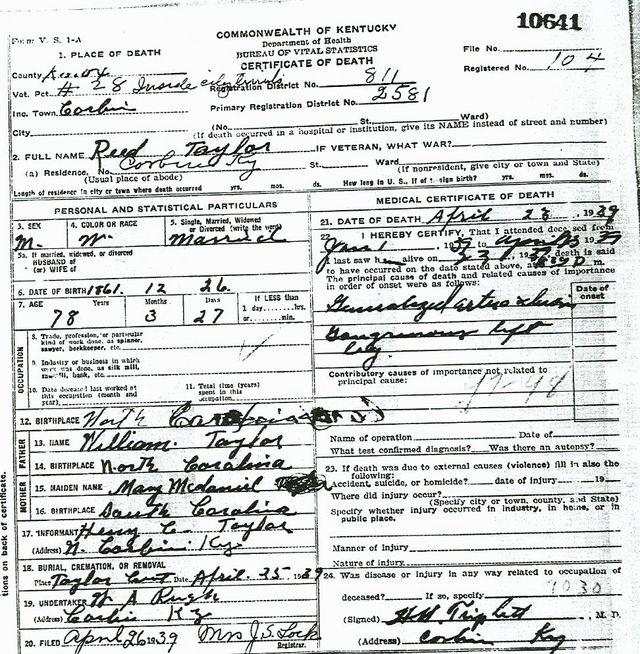 10641
Form V. S. 1-A
COMMONWEALTH OF KENTUCKY
Department of Health
BUREAU OF VITAL STATISTICS
CERTIFICATE OF DEATH
File No.
Registered No. 104
1. PLACE OF DEATH
County
Vot. Pct. # 28 Inside city limits
Registration District No. 811
Inc. Town Corbin
Primary Registration District No. 2581
City
(No. St. Ward)
(If death occurred in a hospital or institution, give its NAME instead of street and number)
2. FULL NAME Reed Taylor
IF VETERAN, WHAT WAR?
(a) Residence. No. Corbin Ky St. Ward
(Usual place of abode)
(If nonresident, give city or town and State)
Length of residence in city or town where death occurred yrs. mos. ds.
How long in U. S., if of birth? yrs. mos. ds.
PERSONAL AND STATISTICAL PARTICULARS
3. SEX
M.
4. COLOR OR RACE
W.
5. Single, Married, Widowed
or Divorced (write the word)
Married
5a. If married, widowed, or divorced
HUSBAND of
(or) WIFE of
6. DATE OF BIRTH 1861. 12 26.
7. AGE Years Months Days
78 3 27
If LESS than
1 day hrs.
or min.
OCCUPATION
8. Trade, profession, or particular
kind of work done, as spinner,
sawyer, bookkeeper, etc.
9. Industry or business in which
work was done, as silk mill,
sawmill, bank, etc.
10. Date deceased last worked at
this occupation (month and
year)
11. Total time (years)
spent in this
occupation
12. BIRTHPLACE North Carolina
FATHER
13. NAME William. Taylor
14. BIRTHPLACE North Carolina
MOTHER
15. MAIDEN NAME Mary Mcdaniel
16. BIRTHPLACE South Carolina
17. INFORMANT Henry C. Taylor
(Address) N. Corbin Ky.
18. BURIAL, CREMATION, OR REMOVAL
Place Taylor Date April. 25 1939
19. UNDERTAKER W A
(Address) Corbin Ky
20. FILED April 26 1939 Mrs J.S. Lock
Registrar.
MEDICAL CERTIFICATE OF DEATH
21. DATE OF DEATH April 23, 1939
22. I HEREBY CERTIFY, That I attended deceased from
Jan 1, 1939 to April 23 1939
I last saw h alive on death is said
to have occurred on the date stated above, at m.
The principal cause of death and related causes of importance
in order of onset were as follows:
Date of
onset
Generalized
Gangrenous left
Contributory causes of importance not related to
principal cause:
97-98
Name of operation Date of
What test confirmed diagnosis? Was there an autopsy?
23. If death was due to external causes (violence) fill in also the
following:
Accident, suicide, or homicide? date of injury 19
Where did injury occur?
(Specify city or town, county, and State)
Specify whether injury occurred in industry, in home, or in
public place.
Manner of injury
Nature of injury
24. Was disease or injury in any way related to occupation of
deceased? If so, specify
1030
(Signed) Triplett M. D.
(Address) Corbin Ky
tions on back of certificate.